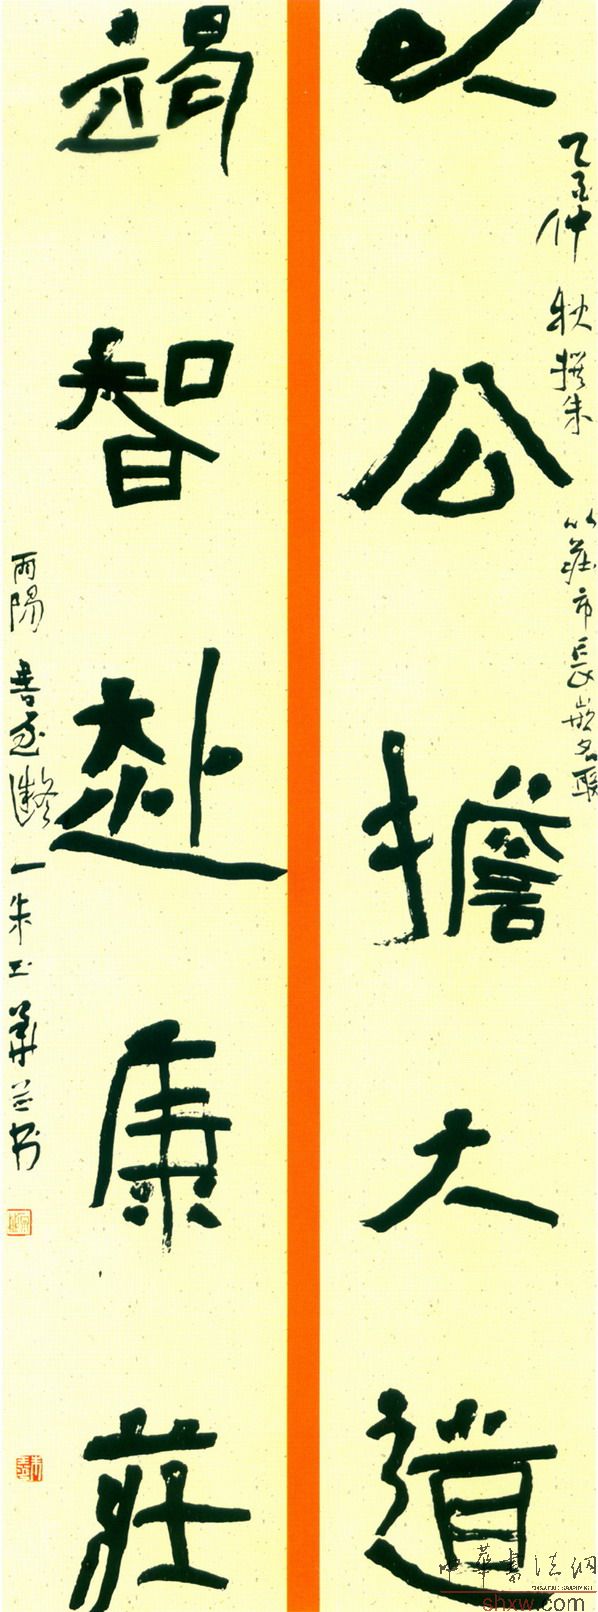 以公擔大道
仲秋撰朱以莊市長嵌名聯
竭智赴康莊
雨陽書屋 朱玉華並書
中華書法網
shxw.com